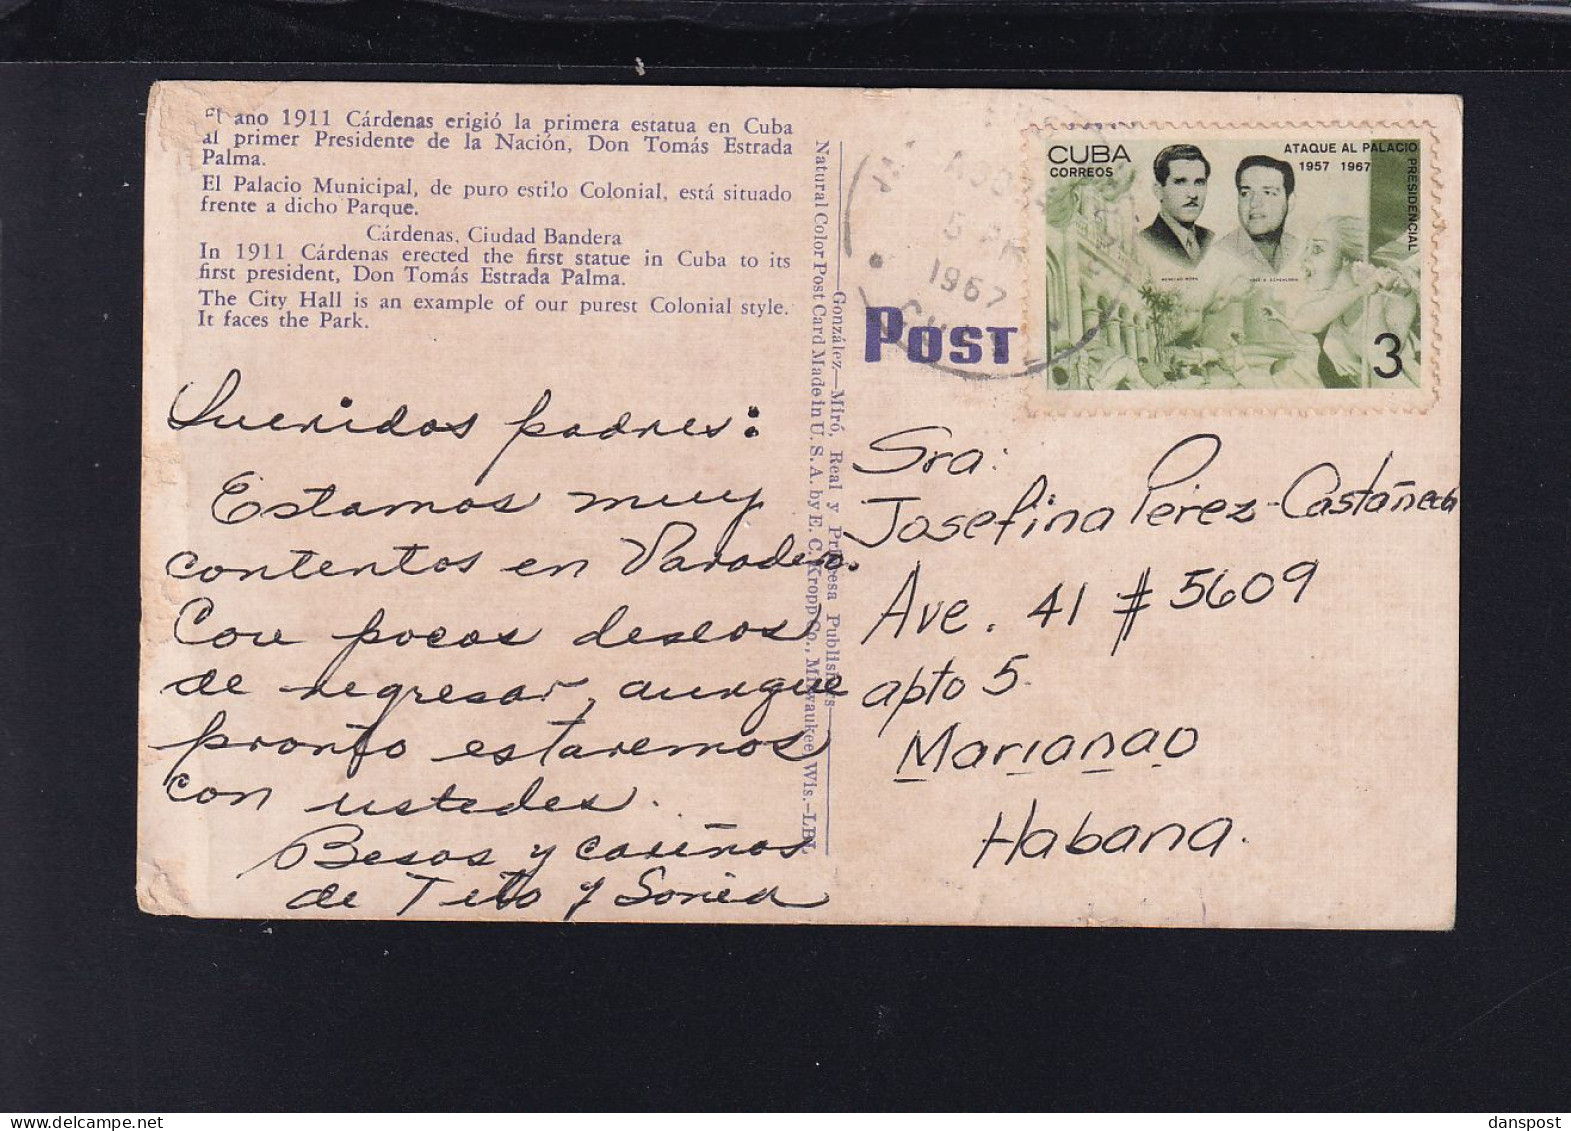 El año 1911 Cárdenas erigió la primera estatua en Cuba
al primer Presidente de la Nación, Don Tomás Estrada
Palma.
El Palacio Municipal, de puro estilo Colonial, está situado
frente a dicho Parque.
Cárdenas, Ciudad Bandera
In 1911 Cárdenas erected the first statue in Cuba to its
first president, Don Tomás Estrada Palma.
The City Hall is an example of our purest Colonial style.
It faces the Park.
Queridos padres:
Estamos muy
contentos en Varadero.
Con pocos deseos
de regresar, aunque
pronto estaremos
con ustedes.
Besos y cariños
de Tito y Sonia
González—Miró, Real y Princesa Publishers
Natural Color Post Card Made in U. S. A. by E. C. Kropp Co., Milwaukee, Wis.—LBL
POST
AGO
5 PM
1967
CUBA
CUBA
CORREOS
ATAQUE AL PALACIO
PRESIDENCIAL
1957 1967
3
Sra:
Josefina Pérez-Castañeda
Ave. 41 # 5609
apto 5.
Marianao
Habana.
danspost